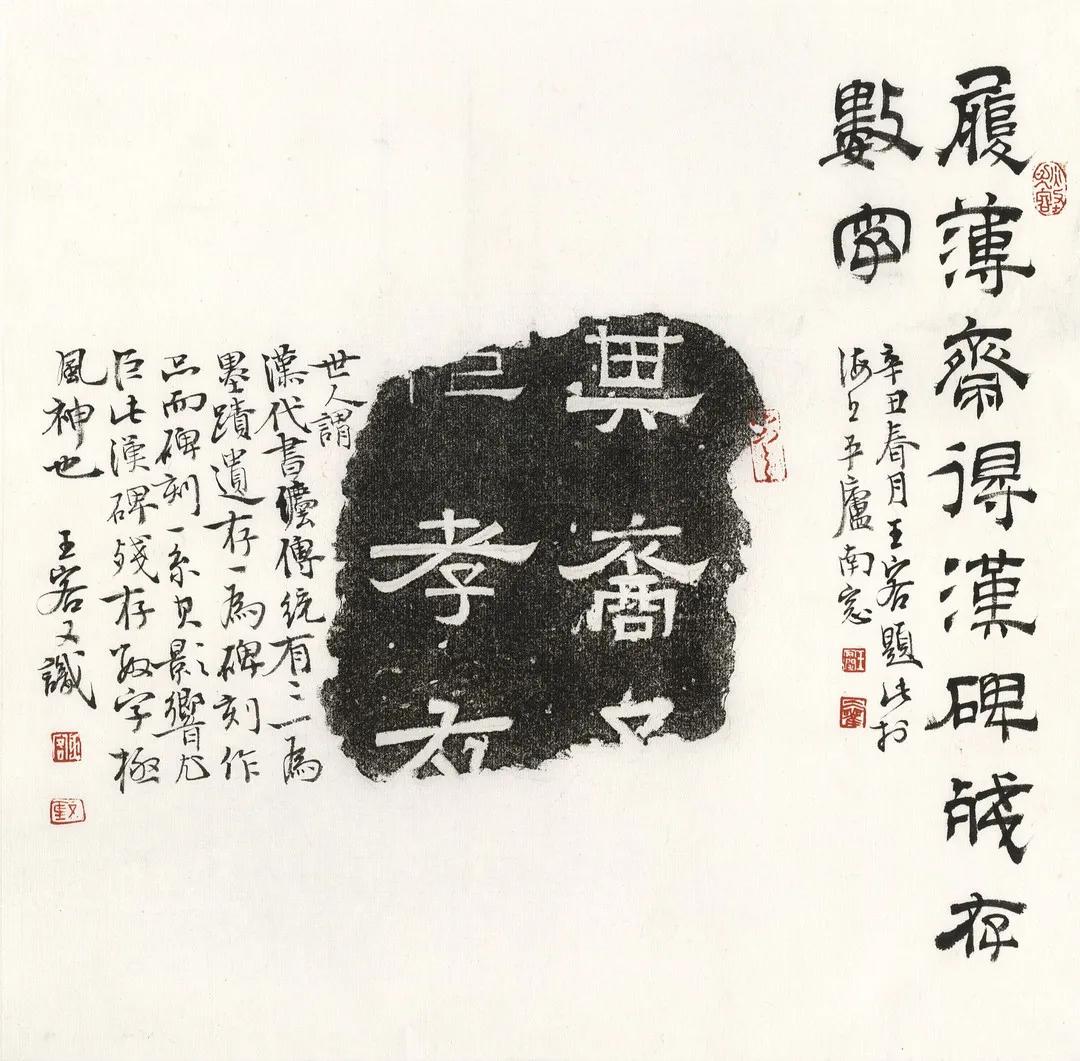 履薄齋得漢碑殘存
數字
辛丑春月王客題此於
海上平廬南窗
其裔
孝友
世人謂
漢代書傳統有二一為
墨蹟遺存一為碑刻作
品而碑刻一系其影響尤
巨此漢碑殘存數字極
風神也 王客又識